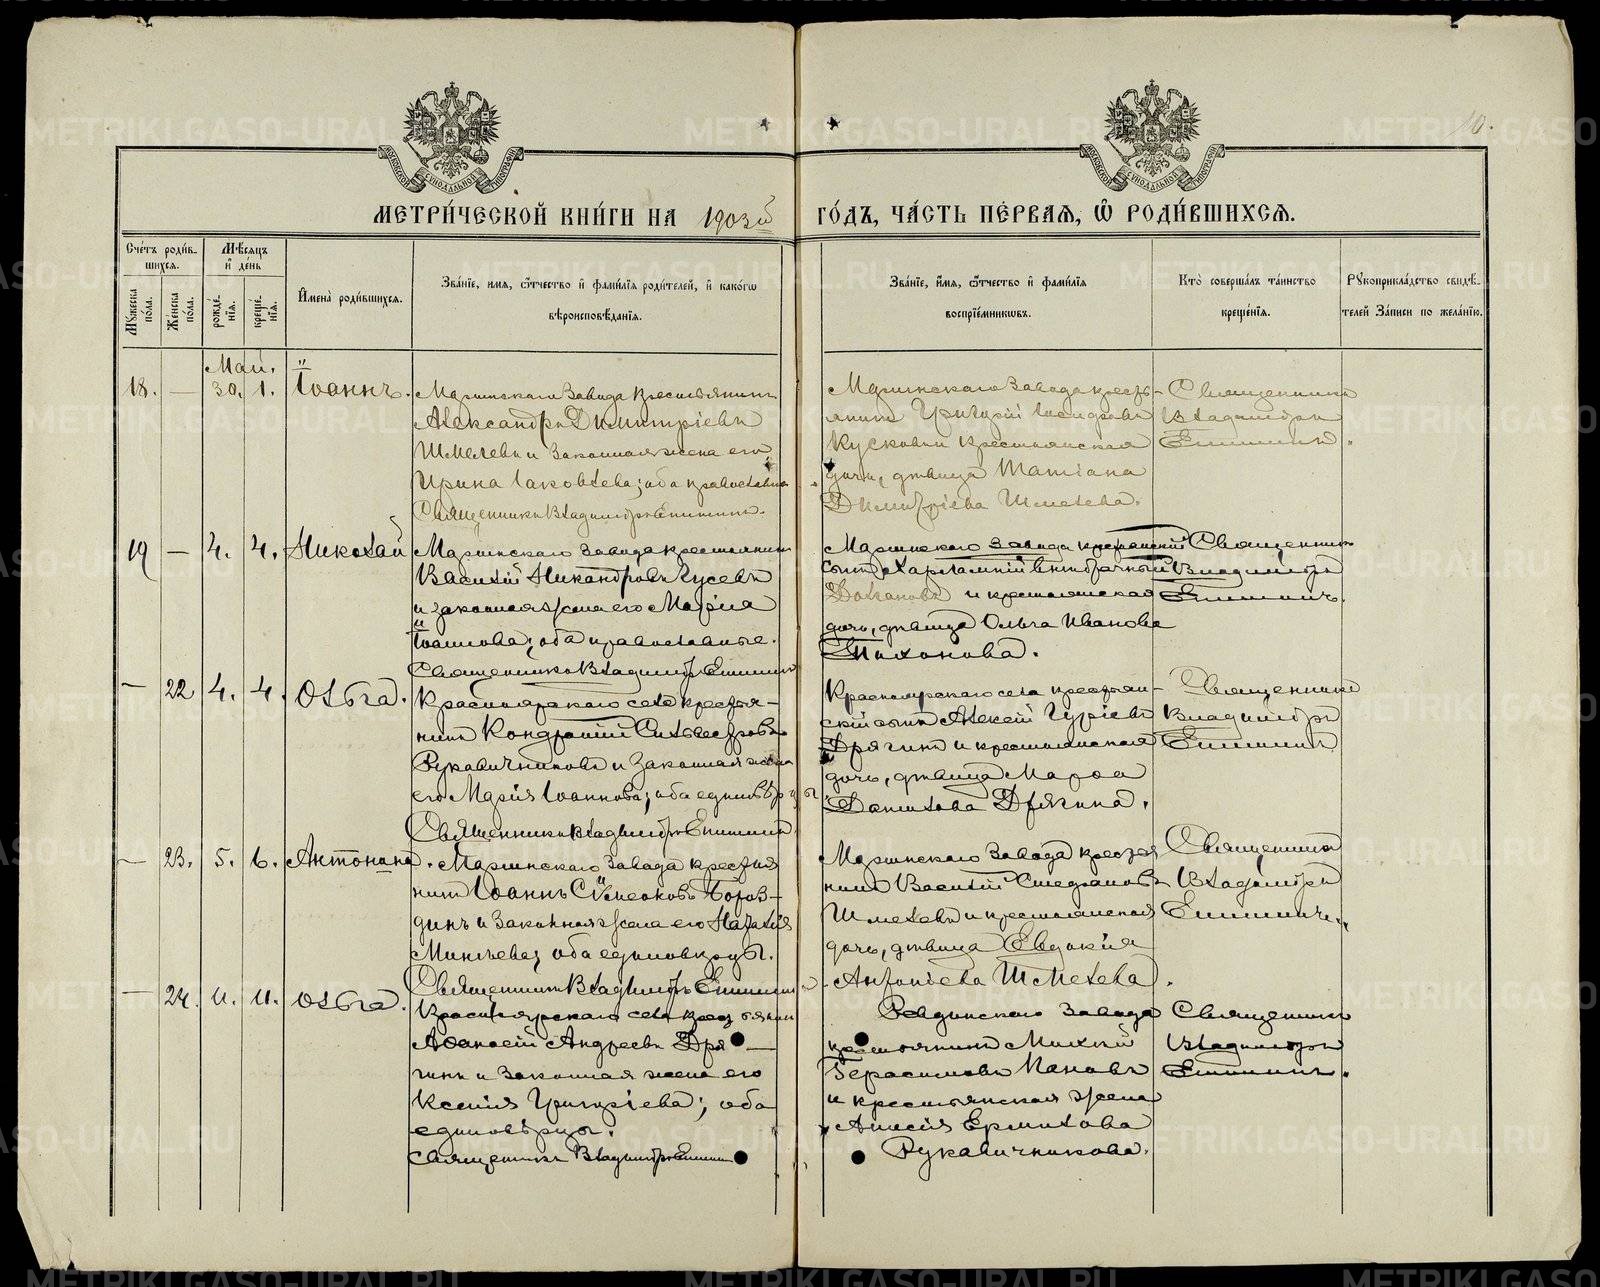 МЕТРИ́ЧЕСКОЙ КНИ́ГИ НА 1903й ГО́ДЪ, ЧА́СТЬ ПЕ́РВАЯ, Ѽ РОДИ́ВШИХСЯ.
10.
Сче́тъ роди́в-
шихся.
Му́жеска по́ла.
Же́нска по́ла.
Мѣ́сяцъ
и҆ де́нь
рожде́нїя.
креще́нїя.
И҆мена̀ роди́вшихся.
Зва́нїе, и҆мя, ѻ҆́тчество и҆ фами́лїя роди́телей, и҆ како́гѡ
вѣроисповѣ́данїя.
Зва́нїе, и҆́мя, ѻ҆́тчество и҆ фами́лїя
воспрїе́мникѡвъ.
Кто̀ соверша́лъ та́инство
креще́нїя.
Рꙋкоприкла́дство свидѣ́-
телей За́писи по жела́нїю.
Май.
18. — 30. 1. Іоаннъ.
Маріинскаго Завода Крестьянинъ
Александръ Димитріевъ
Шмелевъ и Законная жена его
Ирина Іаковлева; оба православные
Священникъ Владиміръ Епишинъ.
Маріинскаго Завода кресть-
янинъ Григорій Исидоровъ
Кусковъ и крестьянская
дочь, дѣвица Татіана
Димитріева Шмелева.
Священникъ
Владиміръ
Епишинъ.
19 — 4. 4. Николай
Маріинскаго Завода крестьянинъ
Василій Никандровъ Гусевъ
и законная жена его Марія
Іоаннова; оба православные.
Священникъ Владиміръ Епишинъ
Маріинскаго Завода крестьянскій
сынъ Харлампій
и крестьянская
дочь, дѣвица Ольга Иванова
Тихонова.
Священникъ
Владиміръ
Епишинъ.
— 22 4. 4. Ольга.
Красноярскаго села крестья-
нинъ Кондратій Сильвестровъ
Рукавичниковъ и Законная жена
его Марія Іоаннова; оба единовѣрцы
Священникъ Владиміръ Епишинъ
Красноярскаго села крестьян-
скій сынъ Алексій Гуріевъ
Дрягинъ и крестьянская
дочь, дѣвица Марѳа
Данилова Дрягина.
Священникъ
Владиміръ
Епишинъ
— 23. 5. 6. Антонина.
Маріинскаго Завода крестья
нинъ Іоаннъ Сѵмеоновъ Бороз-
динъ и Законная жена его Наталія
оба единовѣрцы.
Священникъ Владиміръ Епишинъ
Маріинскаго Завода крестья
нинъ Василій Стефановъ
Шмелевъ и крестьянская
дочь, дѣвица Евдокія
Антоніева Шмелева.
Священникъ
Владиміръ
Епишинъ.
— 24. 11. 11. Ольга.
Красноярскаго села крестьянинъ
Аѳанасій Андреевъ Дря—
гинъ и Законная жена его
Ксенія Григоріева; оба
единовѣрцы.
Священникъ Владиміръ Епишинъ
Ревдинскаго Завода
крестьянинъ
Герасимовъ Пановъ
и крестьянская жена
Анисія Ермилова
Рукавичникова.
Священникъ
Владиміръ
Епишинъ.
METRIKI.GASO-URAL.RU